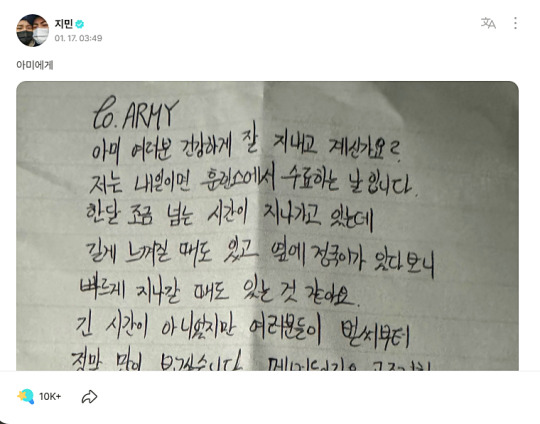 지민
01. 17. 03:49
아미에게
To. ARMY
아미 여러분 건강하게 잘 지내고 계신가요?
저는 내일이면 훈련소에서 수료하는 날입니다.
한달 조금 넘는 시간이 지나가고 있는데
길게 느껴질 때도 있고 옆에 정국이가 있다보니
빠르게 지나갈 때도 있는 것 같아요.
긴 시간이 아니였지만 여러분들이 벌써부터
정말 많이 보고싶습니다.
10K+